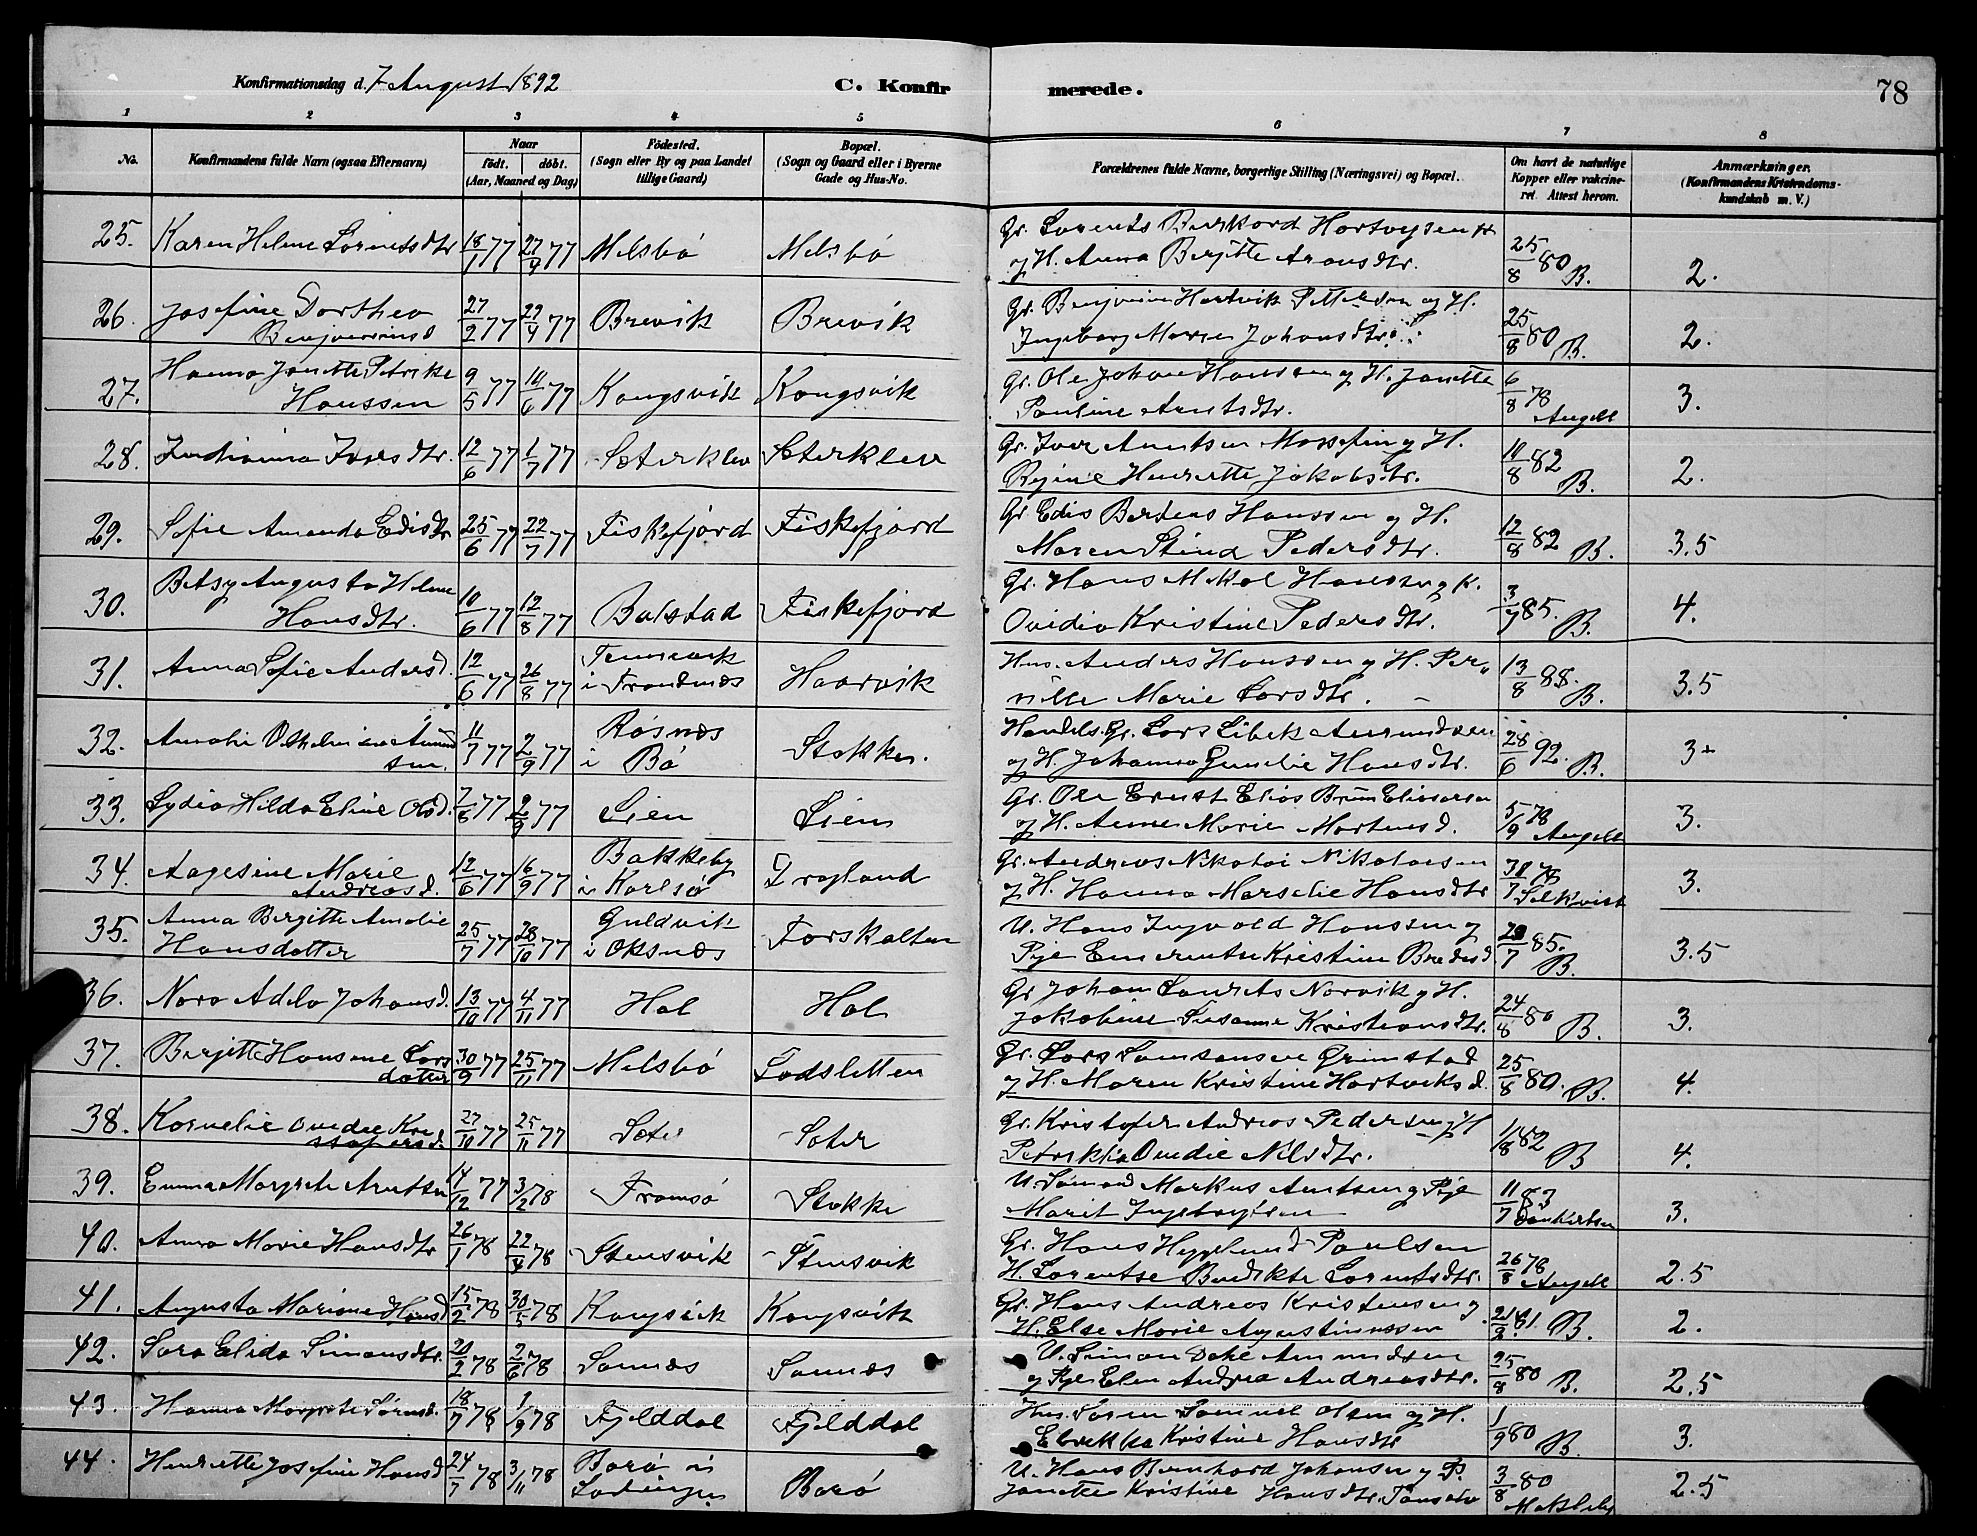 Konfirmationsdag d. 7 August 1892
C. Konfirmerede.
78
1 2 3 4 5 6 7 8
No.
Konfirmandens fulde Navn (ogsaa Efternavn)
Naar
födt. döbt.
(Aar, Maaned og Dag)
Födested.
(Sogn eller By og paa Landet
tillige Gaard)
Bopæl.
(Sogn og Gaard eller i Byerne
Gade og Hus-No.
Forældrenes fulde Navne, borgerlige Stilling (Næringsvei) og Bopæl.
Om havt de naturlige
Kopper eller vakcine-
ret. Attest herom.
Anmærkninger.
(Konfirmandens Kristendoms-
kundskab m. V.)
25. Karen Helene Lorentsdtr 18/1 77 22/4 77 Melsbö Melsbö
Gr. Lorents Hartvigsen
og H. Anna Bergitte Aronsdtr. 25/8 80 B. 2.
26. Josefine Dorthea 27/2 77 22/4 77 Brevik Brevik
Gr. Hartvik Pettersen og H.
Ingeborg Marie Johansdtr. 25/8 80 B. 2.
27. Hanna Janette Petrike
Hanssen 9/5 77 10/6 77 Kongsvik Kongsvik
Gr. Ole Johan Hanssen og H. Janette
Pauline Arntsdtr. 6/8 78 Angell 3.
28. Iversdtr. 12/6 77 1/7 77 Sæterklev Sæterklev
Gr. Iver Arntsen og H.
Regine Henrette Jakobsdtr. 11/8 82 B. 2.
29. Sofie Amanda Edisdtr 25/6 77 22/7 77 Fiskefjord Fiskefjord
Gr. Edis Hanssen og H.
Maren Stina Pedersdtr. 12/8 82 B. 3.5
30. Betsy Augusta Helene
Hansdtr. 10/6 77 12/8 77 Balstad Fiskefjord
Gr. Hans Mikal Hanssen og K.
Ovidia Kristine Pedersdtr. 3/7 85. B. 4.
31. Anna Sofie Andersd. 12/6 77 26/8 77
i Trondenæs Haarvik
Hus. Anders Hanssen og H. Per-
nille Marie Larsdtr. 13/8 88. B. 3.5
32. Amalie Amund
sen. 11/7 77 2/9 77 Rösnæs
i Bö Stokke.
Handels. Gr. Lars Libek Amundsen
og H. Johanna Hansdtr. 28/6 92. B. 3+
33. Lydia Hilda Eline Olsd. 7/8 77 2/9 77 Lien Lien
Gr. Ole Ernst Elias Brun Eliassen
og H. Anne Marie Mortensd. 5/9 78 Angell 3.
34. Aagesine Marie
Andreasd. 12/6 77 16/9 77 Bakkeby
i Karlsö
Gr. Andreas Nikolai Nikolaisen
og H. Hanna Marselie Hansdtr 31/7 78 3.
35. Anna Bergitte Amalie
Hansdatter 25/7 77 28/10 77 Guldvik
i Öksnæs Forskalten
U. Hans Ingvald Hanssen og
Pige Kristine 28/7 85. B. 3.5
36. Nora Adela Johansd. 13/10 77 4/11 77 Hol Hol
Gr Johan Laurits Norvik og H.
Jakobine Susanne Kristiansdtr. 24/8 80 B. 3.
37. Bergitte Hansine Lars
datter 30/9 77 25/11 77 Melsbö
Gr. Lars Grimstad
og H. Maren Kristine Hartviksd. 25/8 80. B. 4.
38. Kornelie Ovedie Kri
stofersd. 27/10 77 25/11 77 Sæter Sæter
Gr. Kristofer Andreas Pedersen og H
Ovedie Nilsdtr. 1/8 82 B 4.
39. Emma Margrete Arntsen 14/12 77 3/2 78 Tromsö Stokke
U. Markus Arntsen og Pige
Marit 11/7 83 3.
40. Anna Marie Hansdtr 26/1 78 22/4 78 Stensvik Stensvik
Gr. Hans Heggelund Paulsen
H. Lorentse Lorentsdtr. 26/8 78 Angell 2.5
41. Augusta Mariane Hansd 15/2 78 30/5 78 Kongsvik Kongsvik
Gr. Hans Andreas Kristensen og
H. Else Marie Agustinussen 81. B. 2.
42. Sara Elida Simonsdtr. 20/2 78 2/6 78 Sannæs Sannæs
U. Simon Amundsen
og Pige Elen Andrea Andreasdtr. 25/8 80 B. 2.5
43. Hanna Margrete Sörensd. 18/7 78 1/9 78 Fjelddal Fjelddal
Hus. Sören Samuel Olsen og H.
Kristine Hansdtr 1/9 80 B. 3.
44. Henrette Josefine Hansd 24/7 78 3/11 78 Barö i
Lödingen Barö
U. Hans Bernhard Johansen og P.
Janette Kristine Hansdtr. 3/8 80 2.5